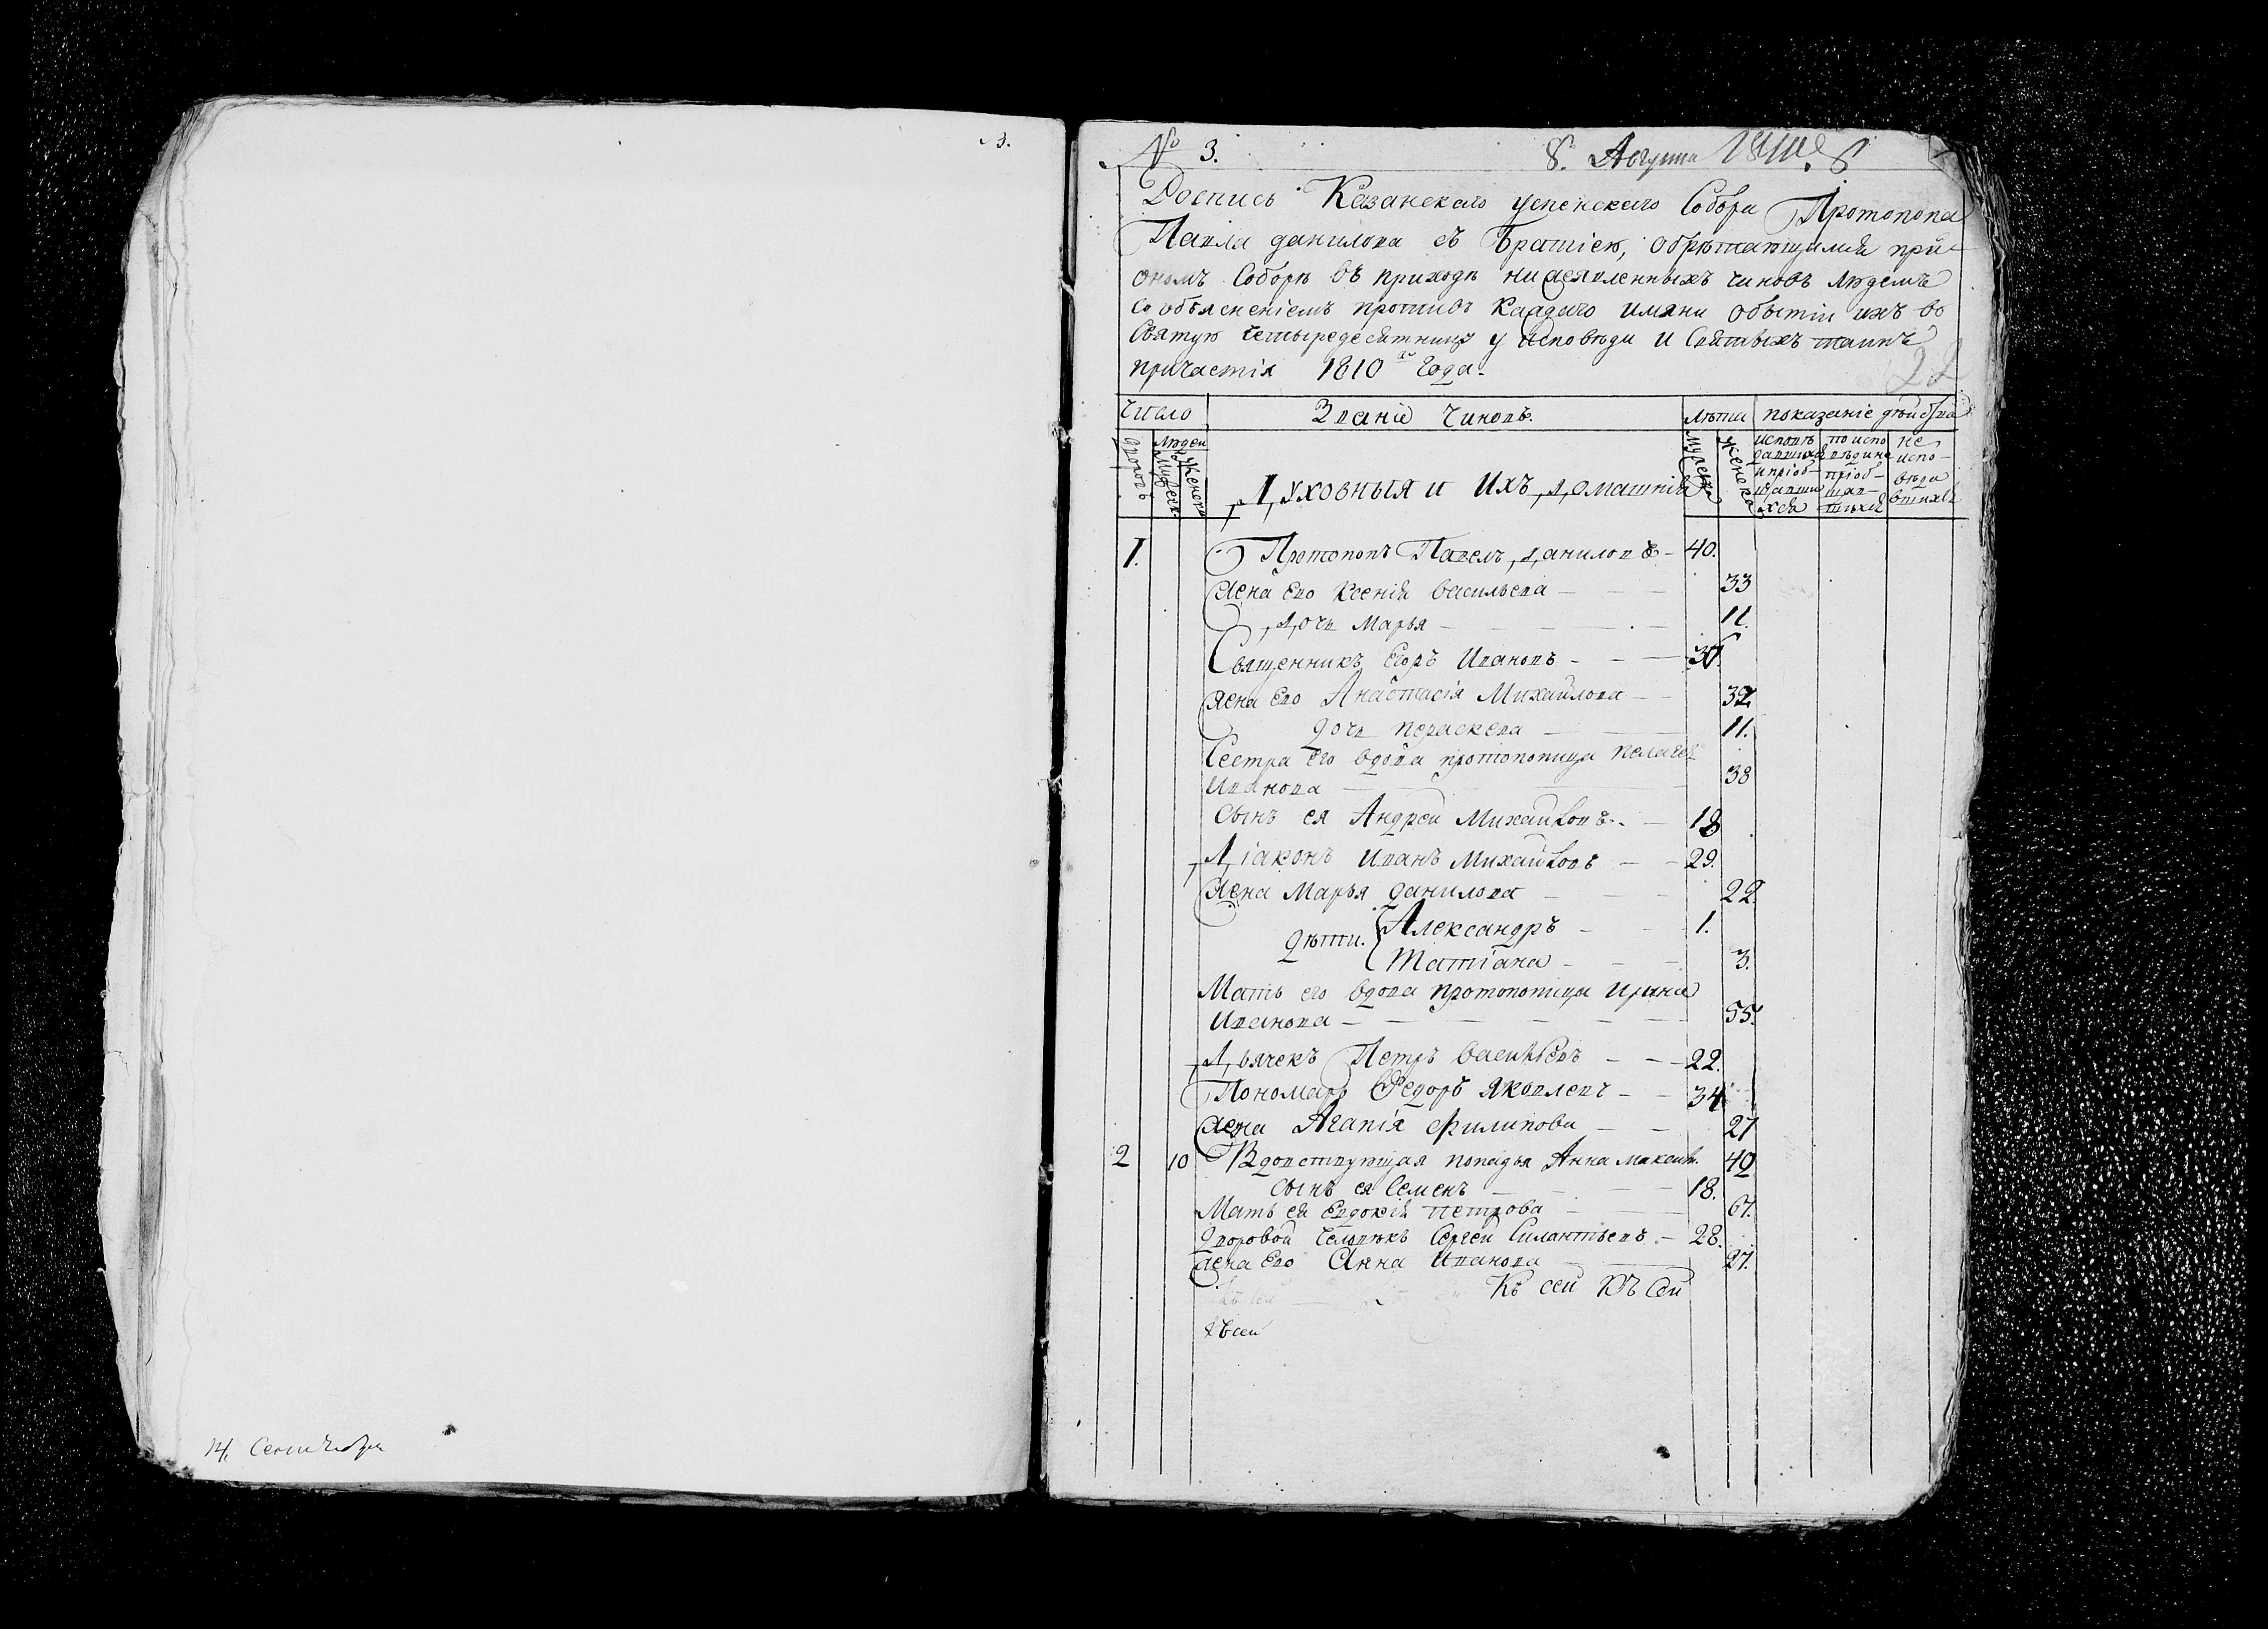 3.
14. Сентября
№ 3.
8. Августа 1810
Роспись Казанскаго успенскаго Собора Протопопа
Павла данилова съ братіею, обрѣтающимся при
ономъ Соборѣ въ приходѣ нижеявленныхъ чиновъ людемъ
со объясненіемъ противъ каждаго имяни о бытіи ихъ во
святую четыредесятницу у исповѣди и святыхъ таинъ
причастія 1810 го года.
Число
Званіе чиновъ.
лѣта
показаніе дѣйства
дворовъ
людей
мужеска
женска
Духовныя и ихъ домашнія
мужеска
женска
исповѣ
давшихся
и пріоб-
щавши
хся
по испо
вѣди не
пріоб-
щав-
шихся
не
испо-
вѣда
вшихся
1. Протопопъ Павелъ даниловъ - 40.
жена его Ксенія васильева 33
дочь Марья 11.
Священникъ Егоръ Ивановъ
жена его Анастасія Михайлова 32
дочь параскева 11.
Сестра его вдова протопопица пелагея
Иванова 38
Сынъ ея Андрей Михайловъ 18
Діаконъ Иванъ Михайловъ 29.
жена Марья данилова 22.
дѣти. Александръ 1.
Татіана 3.
Мать его вдова протопопица ирина
Иванова 55.
Дьячекъ Петръ васильевъ 22.
Пономарь Федоръ Яковлевъ 34
жена Агапія Филипова 27
2 10 Вдовствующая попадья Анна максим. 40
сынъ ея Семенъ 18.
Мать ея Евдокія петрова 67.
дворовой человѣкъ Сергей Силантьевъ 28.
жена его Анна Иванова 27.
Къ сей Къ сей
Къ сей